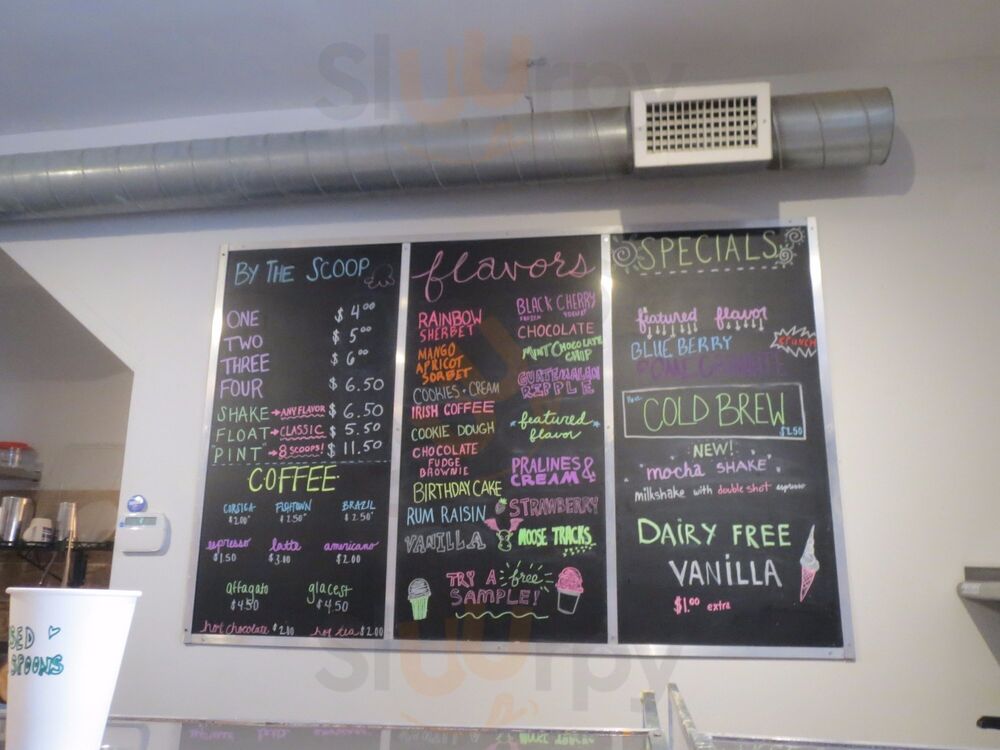 Sluurpy
BY THE SCOOP
ONE $ 4⁰⁰
TWO $ 5⁰⁰
THREE $ 6⁰⁰
FOUR $ 6.50
SHAKE → ANY FLAVOR $ 6.50
FLOAT → CLASSIC $ 5.50
"PINT" → 8 SCOOPS! $ 11.50
COFFEE
CORSICA FISHTOWN BRAZIL
$2.00 $2.50 $2.50
espresso latte americano
$1.50 $3.00 $2.00
affagato glacest
$4.50 $4.50
hot chocolate $2.00 hot tea $2.00
flavors
RAINBOW
SHERBET
MANGO
APRICOT
SORBET
COOKIES + CREAM
IRISH COFFEE
COOKIE DOUGH
CHOCOLATE
FUDGE
BROWNIE
BIRTHDAY CAKE
RUM RAISIN
VANILLA
BLACK CHERRY
FROZEN YOGURT
CHOCOLATE
MINT CHOCOLATE
CHIP
GUATEMALAN
RIPPLE
featured
flavor
PRALINES &
CREAM
STRAWBERRY
MOOSE TRACKS
TRY A free
SAMPLE!
SPECIALS
featured flavor
BLUEBERRY
CRUNCH
COLD BREW
$2.50
NEW!
"mocha SHAKE"
milkshake with double shot espresso
DAIRY FREE
VANILLA
$1.00 extra
SED
SPOONS
Sluurpy